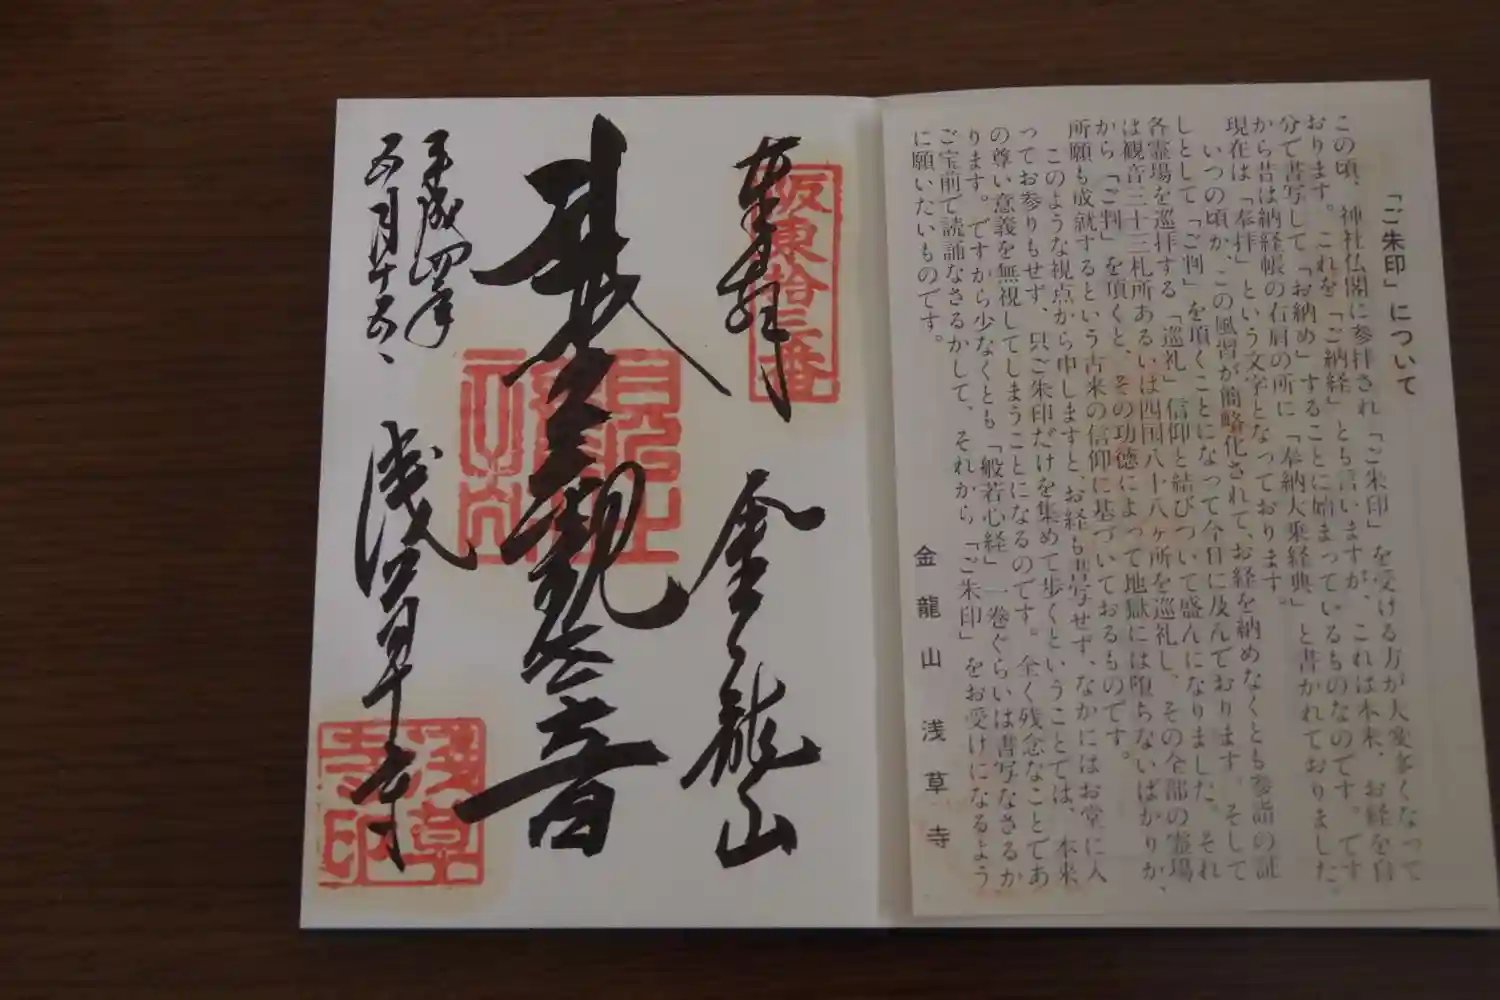 「ご朱印」について
この頃、神社仏閣に参拝され「ご朱印」を受ける方が大変多くなって
おります。これを「ご納経」とも言いますが、これは本来、お経を自
分で書写して、「お納め」することに始まっているものなのです。です
から昔は納経帳の右肩の所に「奉納大乗経典」と書かれておりました。
現在は「奉拝」という文字となっております。
いつの頃か、この風習が簡略化されて、お経を納めなくとも参詣の証
しとして「ご判」を頂くことになって今日に及んでおります。そして
各霊場を巡拝する「巡礼」信仰と結びついて盛んになりました。それ
は観音三十三札所あるいは四国八十八ヶ所を巡礼し、その全部の霊場
から「ご判」を頂くと、その功徳によって地獄には堕ちないばかりか、
所願も成就するという古来の信仰に基づいておるものです。
このような視点から申しますと、お経も書写せず、なかにはお堂に入
ってお参りもせず、只ご朱印だけを集めて歩くということでは、本来
の尊い意義を無視してしまうことになるのです。全く残念なことであ
ります。ですから少なくとも「般若心経」一巻ぐらいは書写なさるか
ご宝前で読誦なさるかして、それから「ご朱印」をお受けになるよう
に願いたいものです。
金龍山浅草寺
奉拝
坂東拾三番
金龍山
聖観世音
平成四年
五月十五日
浅草寺
浅草寺印